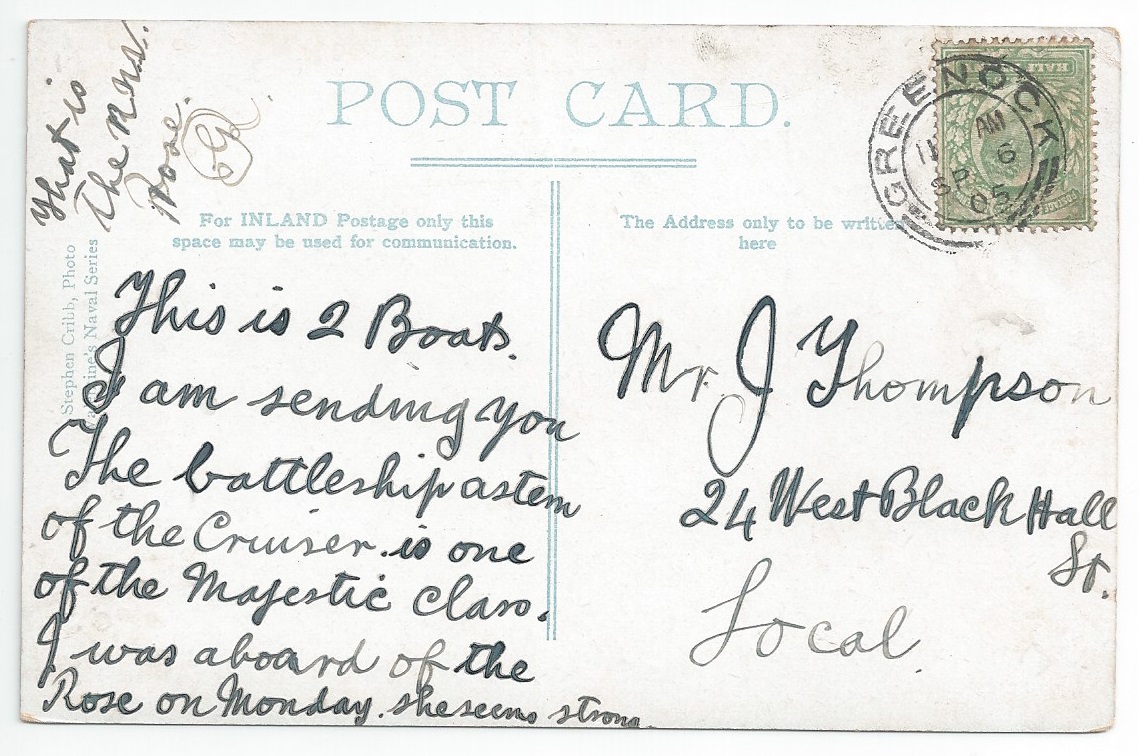 That is
the Mrs.
Rose.
POST CARD.
For INLAND Postage only this
space may be used for communication.
The Address only to be written
here
GREENOCK
AM
6
SP 5
Stephen Cribb, Photo
Naval Series
This is 2 Boats.
I am sending you
The battleship astern
of the Cruiser is one
of the Majestic Class.
I was aboard of the
Rose on Monday. she seems strong.
Mr. J Thompson
24 West Black Hall
St.
Local.